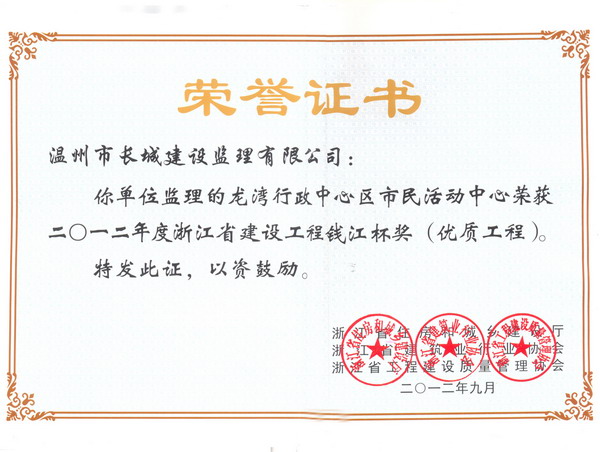 荣誉证书
温州市长城建设监理有限公司：
你单位监理的龙湾行政中心区市民活动中心荣获
二〇一二年度浙江省建设工程钱江杯奖（优质工程）。
特发此证，以资鼓励。
浙江省住房和城乡建设厅
浙江省建筑业行业协会
浙江省工程建设质量管理协会
二〇一二年九月